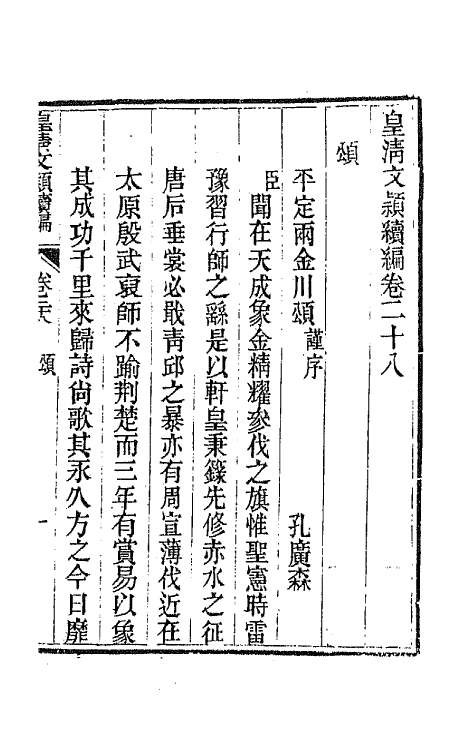 皇清文穎續編卷二十八
頌
平定兩金川頌謹序　孔廣森
臣聞在天成象金精耀參伐之旗惟聖憲時雷
豫習行師之繇是以軒皇秉籙先修赤水之征
唐后垂裳必戢靑邱之暴亦有周宣薄伐近在
太原殷武裒師不踰荆楚而三年有賞易以象
其成功千里來歸詩尙歌其永久方之今日靡
皇淸文穎續編　卷二十八　頌　一